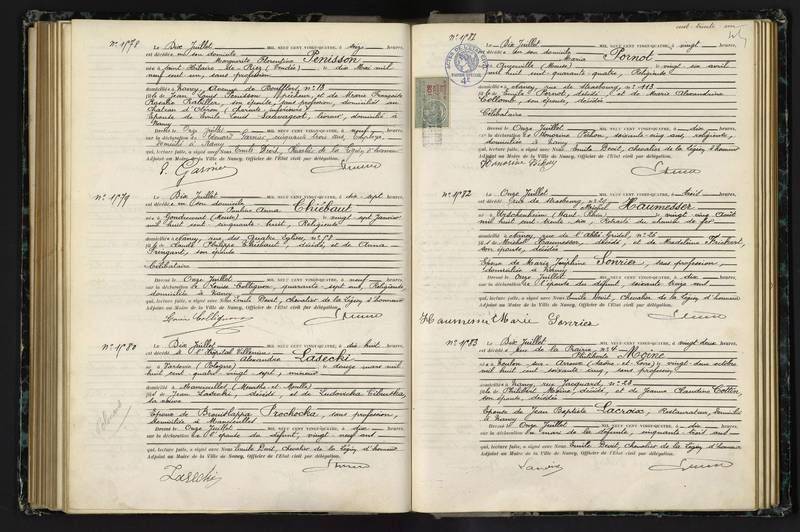 N° 1778
Le Dix Juillet MIL NEUF CENT VINGT-QUATRE, à seize heures,
est décédée en son domicile
Marguerite Florentine Penisson
née à Saint Hilaire de Riez (Vendée) le dix Mai mil
neuf cent un, sans profession
domiciliée à Nancy, Avenue de Boufflers, N° 13
fille de Jean Louis Penisson, Pêcheur, et de Marie Françoise
son épouse, sans profession, domiciliés au
Château d'Oléron (Charente inférieure)
Epouse de Emile Louis Sauvageot, domicilié à
Nancy
Onze Juillet MIL NEUF CENT VINGT-QUATRE, à neuf heures,
sur la déclaration de Edouard cinquante trois ans, Employé,
domicilié à Nancy
qui, lecture faite, a signé avec Nous Emile Devit, Chevalier de la Légion d'honneur
Adjoint au Maire de la Ville de Nancy, Officier de l'Etat civil par délégation.
N° 1779
Le Dix Juillet MIL NEUF CENT VINGT-QUATRE, à dix-sept heures,
est décédée en son domicile
Pauline Anna Thiébaut
née à Gondrecourt (Meuse) le vingt sept Janvier
mil huit cent cinquante-huit, Religieuse
domiciliée à Nancy, rue des Quatre Eglises, N° 58
fille de Claude Philippe Thiébaut, décédé, et de Anna
son épouse
Célibataire
Dressé le Onze Juillet MIL NEUF CENT VINGT-QUATRE, à neuf heures,
sur la déclaration de Louise Collignon, quarante sept ans, Religieuse
domiciliée à Nancy
qui, lecture faite, a signé avec Nous Emile Devit, Chevalier de la Légion d'honneur
Adjoint au Maire de la Ville de Nancy, Officier de l'Etat civil par délégation.
Louise Collignon
N° 1780
Le Dix Juillet MIL NEUF CENT VINGT-QUATRE, à dix huit heures,
est décédé à l'Hôpital Villemin
Alexandre Lasecki
né à Varsovie (Pologne) le douze mars mil
huit cent quatre vingt sept, mineur
domicilié à Mancieulles (Meurthe-et-Moselle)
fils de Jean Lasecki, décédé, et de Ludovicka
sa veuve
Epoux de Bronislappa Prochocka, sans profession,
domiciliée à Mancieulles
Dressé le Onze Juillet MIL NEUF CENT VINGT-QUATRE, à dix heures,
sur la déclaration de l'épouse du défunt, vingt neuf ans
qui, lecture faite, a signé avec Nous Emile Devit, chevalier de la Légion d'honneur
Adjoint au Maire de la Ville de Nancy, Officier de l'Etat civil par délégation.
Lasecki
cent trente un
N° 1781
Le Dix Juillet MIL NEUF CENT VINGT-QUATRE, à vingt heures,
est décédée en son domicile
Maria Pornot
née à (Meuse) le vingt six avril
mil huit cent quarante quatre, Religieuse
domiciliée à Nancy, rue de Strasbourg, N° 113
fille de Emile Pornot, décédé et de Marie Alexandrine
Collomb, son épouse, décédée
Célibataire
Dressé le Onze Juillet MIL NEUF CENT VINGT-QUATRE, à dix heures,
sur la déclaration de Honorine soixante-cinq ans, religieuse,
domiciliée à Nancy
qui, lecture faite, a signé avec Nous Emile Devit, chevalier de la Légion d'honneur
Adjoint au Maire de la Ville de Nancy, Officier de l'Etat civil par délégation.
N° 1782
Le Onze Juillet MIL NEUF CENT VINGT-QUATRE, à huit heures,
est décédé rue de Strasbourg
Michel Haumesser
né à Urschenheim (Haut-Rhin) le vingt cinq Août
mil huit cent trente six, Retraité du chemin de fer
domicilié à Nancy, rue de l'Abbé Gridel, N° 26
fils de Michel Haumesser, décédé, et de Madeleine
son épouse, décédée
Epoux de Marie Joséphine Sonrier, sans profession,
domiciliée à Nancy
Dressé le Onze Juillet MIL NEUF CENT VINGT-QUATRE, à dix heures,
sur la déclaration de l'épouse du défunt, soixante onze ans
qui, lecture faite, a signé avec Nous Emile Devit, chevalier de la Légion d'honneur
Adjoint au Maire de la Ville de Nancy, Officier de l'Etat civil par délégation.
Haumesser Marie Sonrier
N° 1783
Le Dix Juillet MIL NEUF CENT VINGT-QUATRE, à vingt deux heures,
est décédée rue de la Prairie, N° 4
Philiberte Moine
née à (Saône et Loire) le vingt deux octobre
mil huit cent soixante cinq, sans profession
domiciliée à Nancy, rue Jacquard, N° 28
fille de Philibert Moine, décédé et de Jeanne Claudine Cottin
son épouse, décédée
Epouse de Jean Baptiste Lacroix, Restaurateur, domicilié
à Nancy
Dressé le Onze Juillet MIL NEUF CENT VINGT-QUATRE, à dix heures,
sur la déclaration de la défunte, cinquante huit ans
qui, lecture faite, a signé avec Nous Emile Devit, chevalier de la Légion d'honneur
Adjoint au Maire de la Ville de Nancy, Officier de l'Etat civil par délégation.